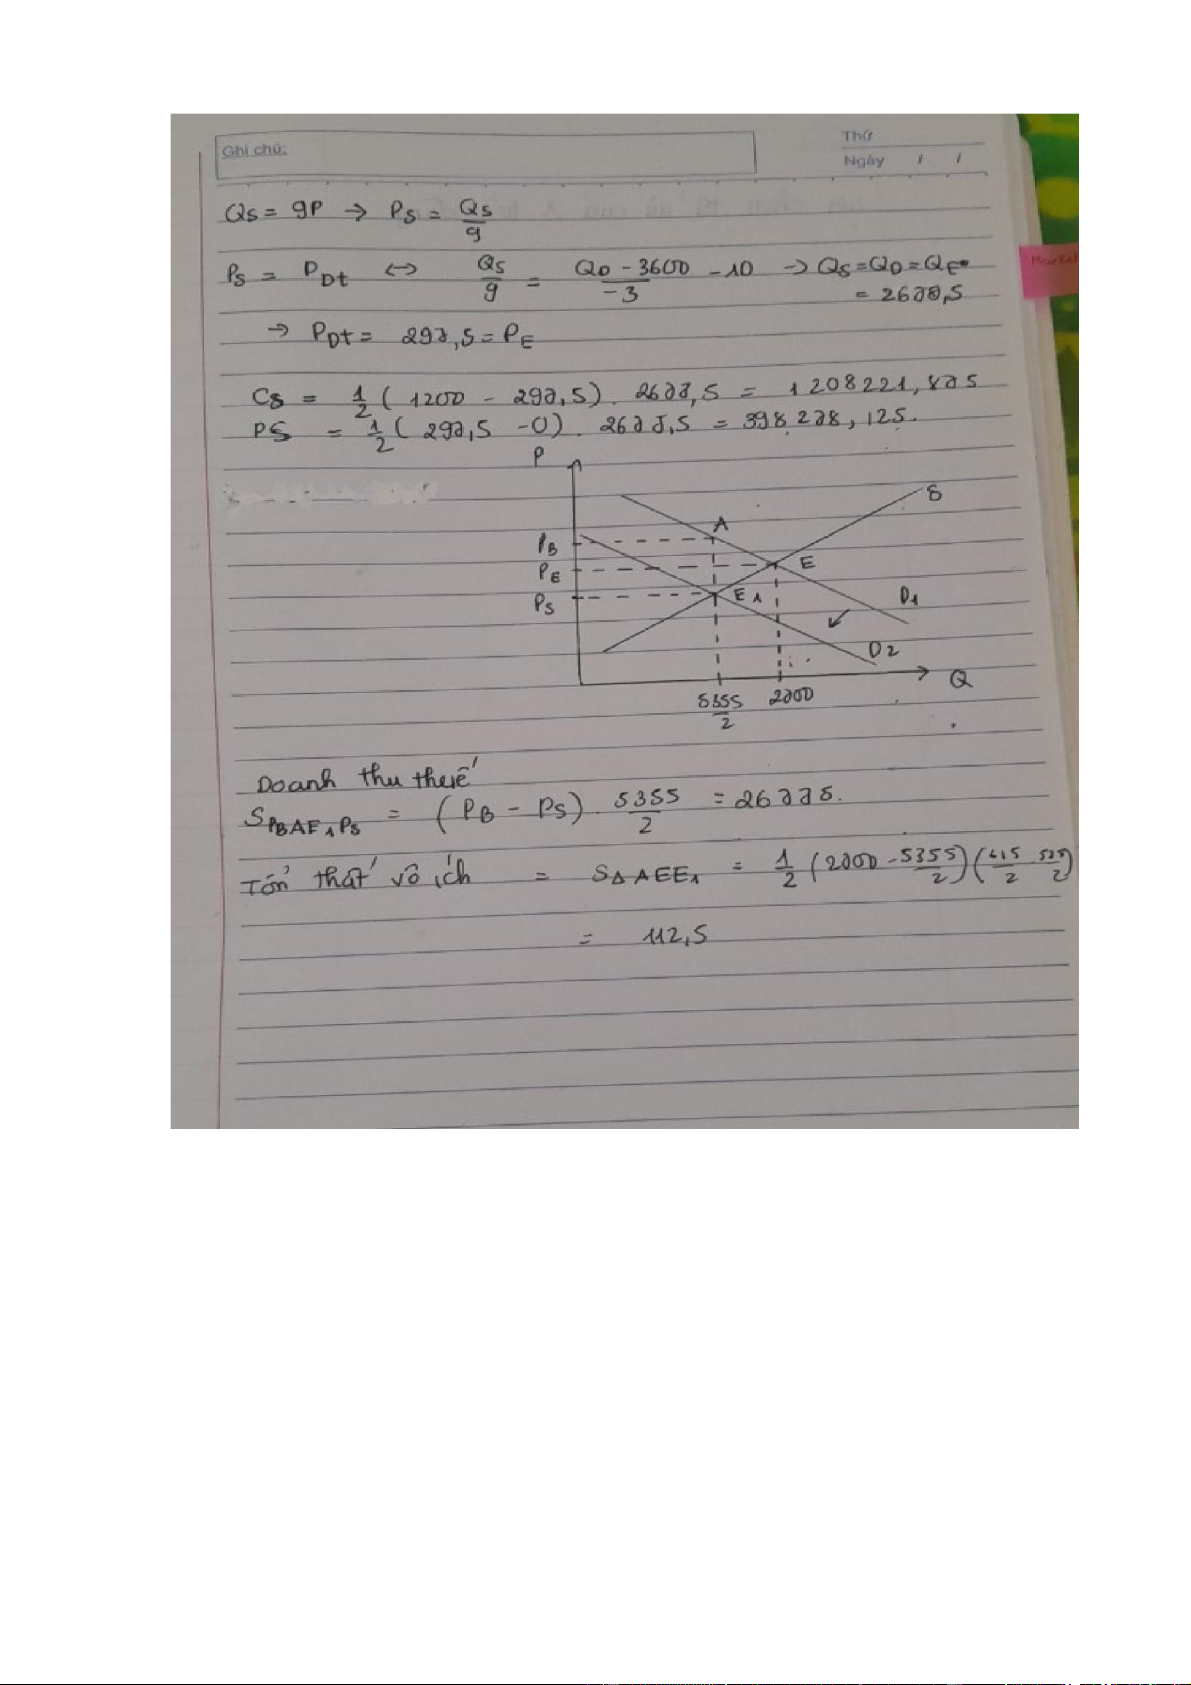 Ghi chú:
Thứ
Ngày / /
Qs = 9P → Ps = Qs/9
Ps = PDt ↔ Qs/9 = (QD - 3600)/-3 - 10 → Qs = QD = QE
= 2677,5
→ PDt = 297,5 = PE
CS = 1/2 (1200 - 297,5). 2677,5 = 1208221,875
PS = 1/2 (297,5 - 0). 2677,5 = 398278,125.
P
S
A
PB
PE
E
PS
E1
D1
D2
Q
5355/2 2700
Doanh thu thuế
SPBAE1PS = (PB - PS). 5355/2 = 26775.
Tổn thất vô ích = SΔAEE1 = 1/2 (2700 - 5355/2)(615/2 - 595/2)
= 112,5
Market